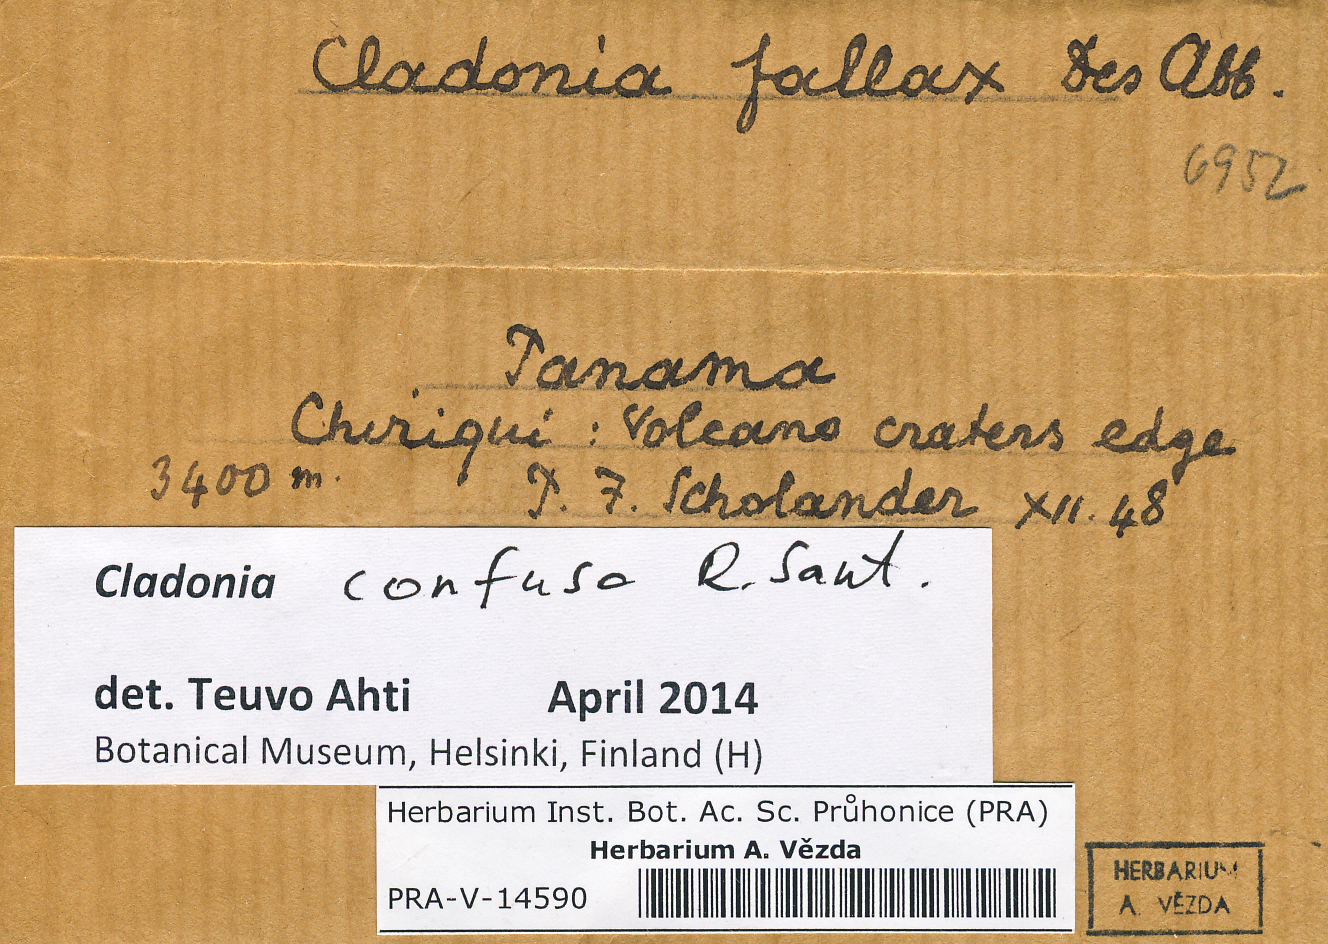 Cladonia fallax Des Abb.
6952
Panama
Chiriqui : Volcano craters edge
3400 m. P. F. Scholander XII. 48
Cladonia confusa R. Sant.
det. Teuvo Ahti April 2014
Botanical Museum, Helsinki, Finland (H)
Herbarium Inst. Bot. Ac. Sc. Průhonice (PRA)
Herbarium A. Vězda
PRA-V-14590
HERBARIUM
A. VĚZDA